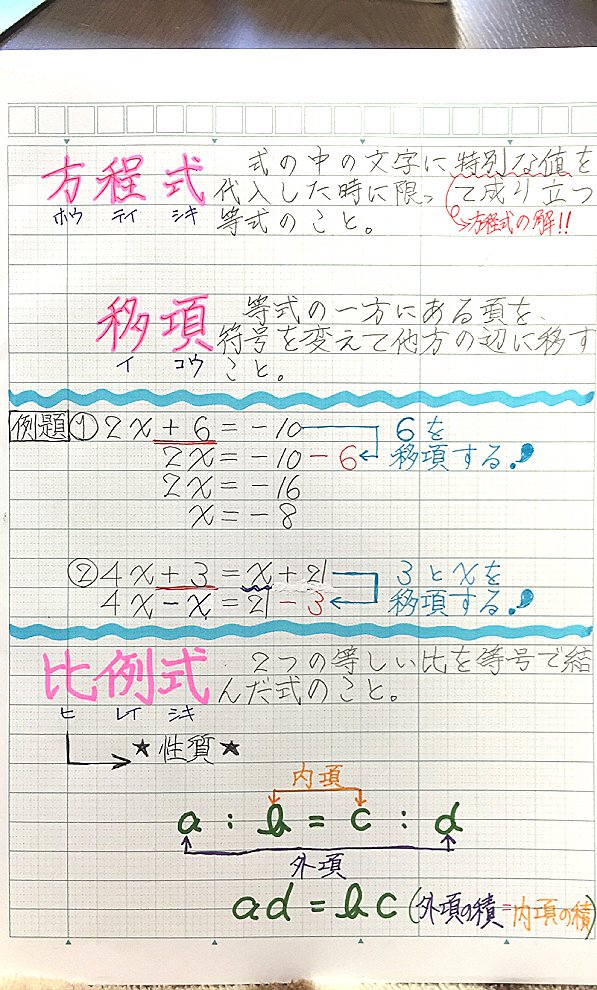 方程式 式の中の文字に特別な値を
代入した時に限って成り立つ
ホウ テイ シキ 等式のこと。 方程式の解!!
移項 等式の一方にある項を、
符号を変えて他方の辺に移す
イ コウ こと。
例題 ① 2x + 6 = -10 6を
2x = -10 - 6 移項する。
2x = -16
x = -8
② 4x + 3 = x + 21 3とxを
4x - x = 21 - 3 移項する。
比例式 2つの等しい比を等号で結
んだ式のこと。
ヒ レイ シキ
★性質★
内項
a : b = c : d
外項
ad = bc (外項の積=内項の積)